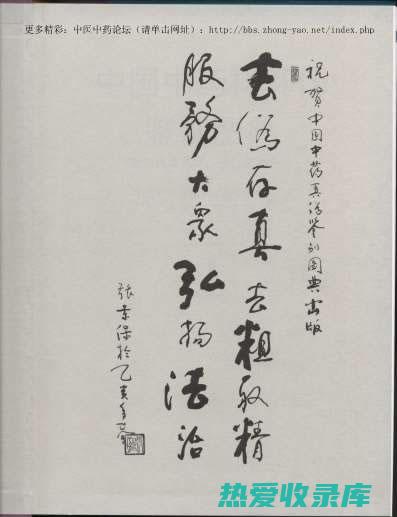 更多精彩：中医中药论坛（请单击网址）：http://bbs.zhong-yao.net/index.php
祝贺中国中药真伪鉴别图典出版
去僞存真去粗取精
服務大眾弘扬法治
张 保於乙亥年
热爱收录库